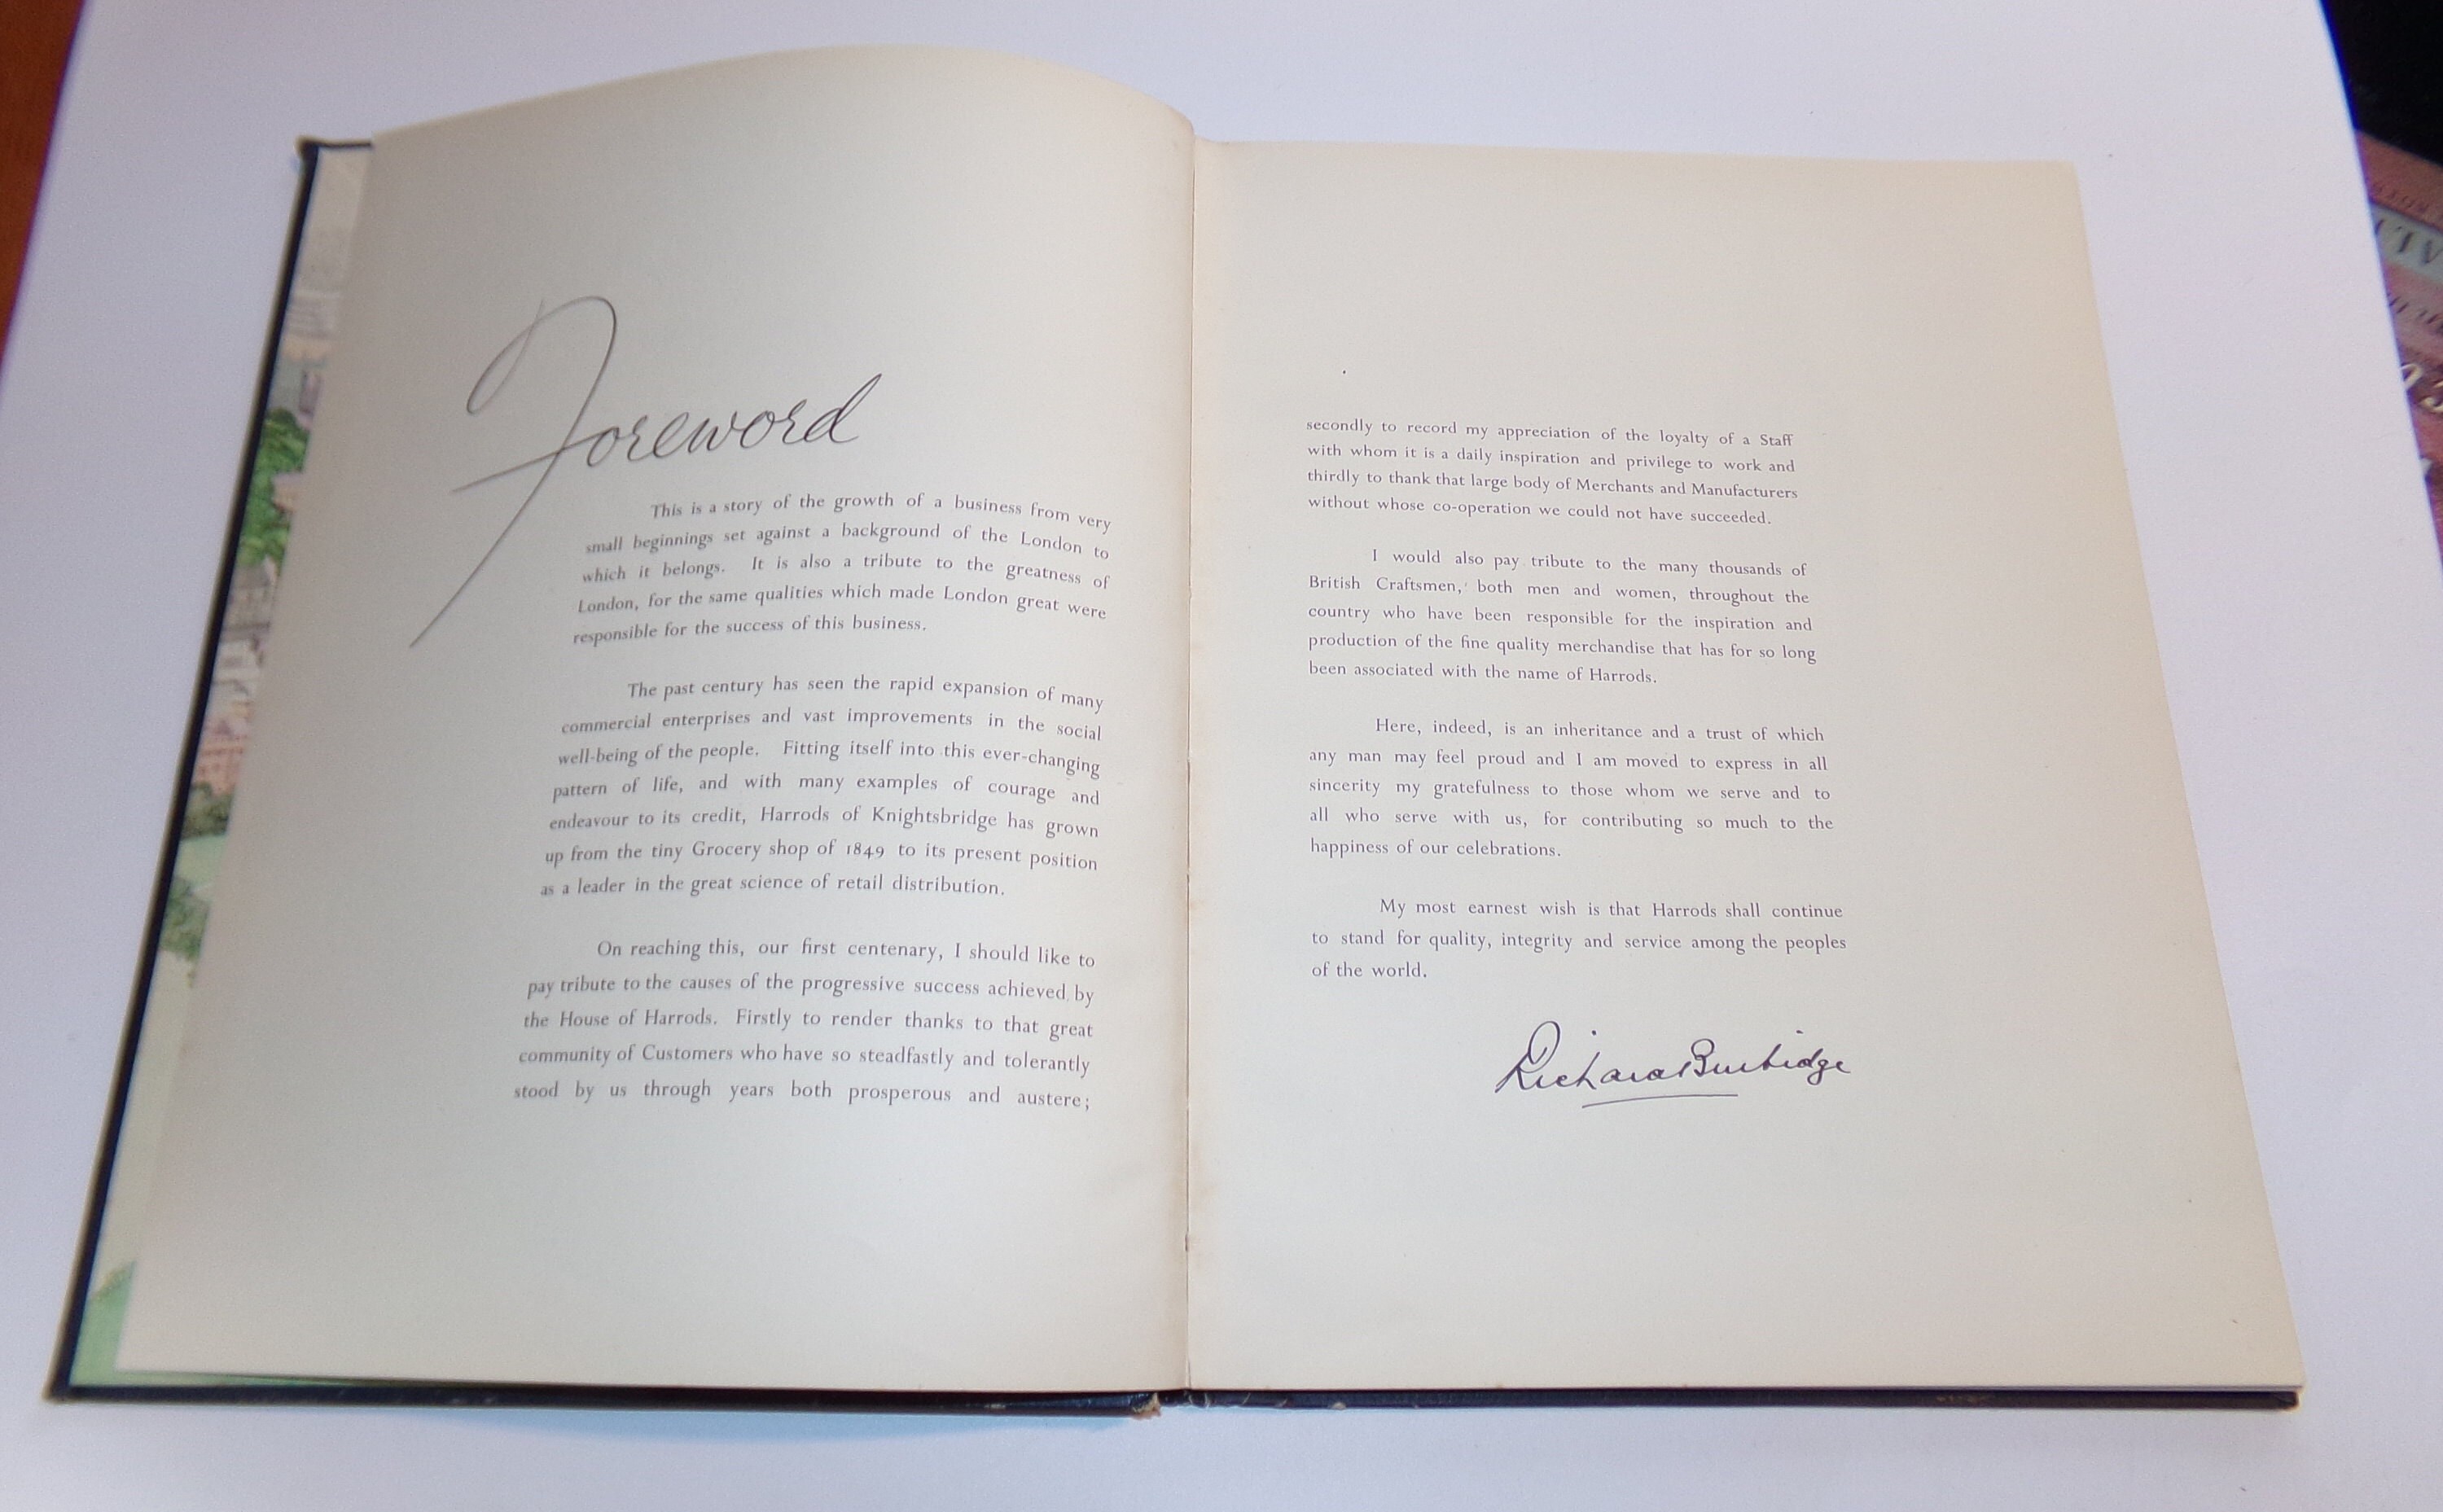 Foreword
This is a story of the growth of a business from very
small beginnings set against a background of the London to
which it belongs. It is also a tribute to the greatness of
London, for the same qualities which made London great were
responsible for the success of this business.
The past century has seen the rapid expansion of many
commercial enterprises and vast improvements in the social
well-being of the people. Fitting itself into this ever-changing
pattern of life, and with many examples of courage and
endeavour to its credit, Harrods of Knightsbridge has grown
up from the tiny Grocery shop of 1849 to its present position
as a leader in the great science of retail distribution.
On reaching this, our first centenary, I should like to
pay tribute to the causes of the progressive success achieved by
the House of Harrods. Firstly to render thanks to that great
community of Customers who have so steadfastly and tolerantly
stood by us through years both prosperous and austere;
secondly to record my appreciation of the loyalty of a Staff
with whom it is a daily inspiration and privilege to work and
thirdly to thank that large body of Merchants and Manufacturers
without whose co-operation we could not have succeeded.
I would also pay tribute to the many thousands of
British Craftsmen, both men and women, throughout the
country who have been responsible for the inspiration and
production of the fine quality merchandise that has for so long
been associated with the name of Harrods.
Here, indeed, is an inheritance and a trust of which
any man may feel proud and I am moved to express in all
sincerity my gratefulness to those whom we serve and to
all who serve with us, for contributing so much to the
happiness of our celebrations.
My most earnest wish is that Harrods shall continue
to stand for quality, integrity and service among the peoples
of the world.
Richard Burbidge